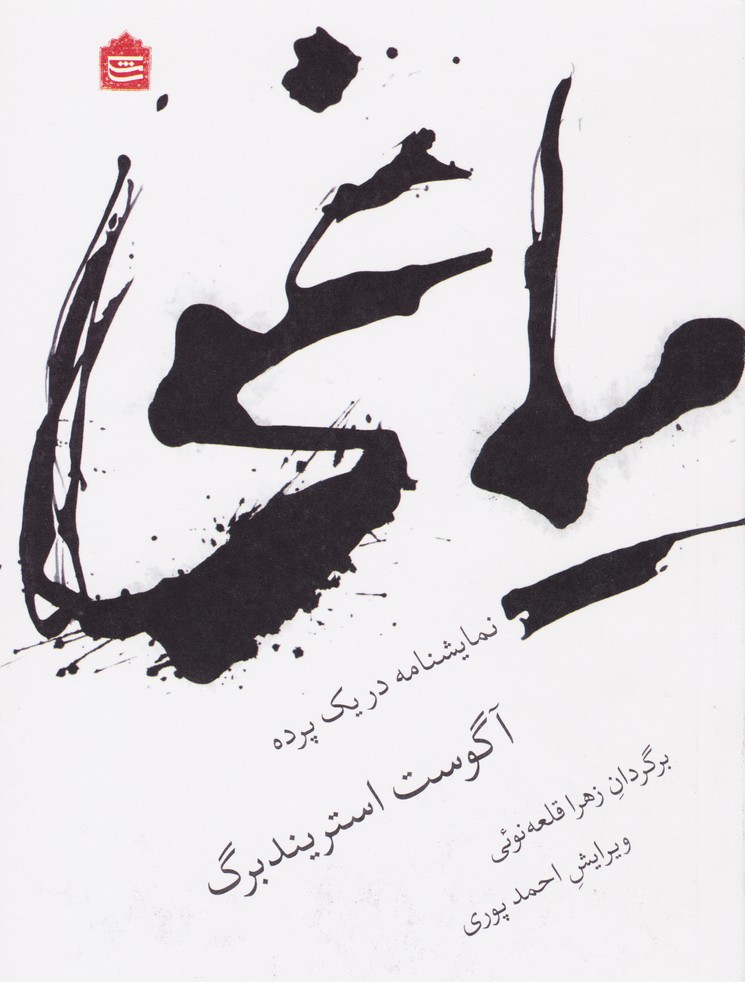 یاغی
نمایشنامه در یک پرده
آگوست استریندبرگ
برگردانِ زهرا قلعه‌نوئی
ویرایشِ احمد پوری